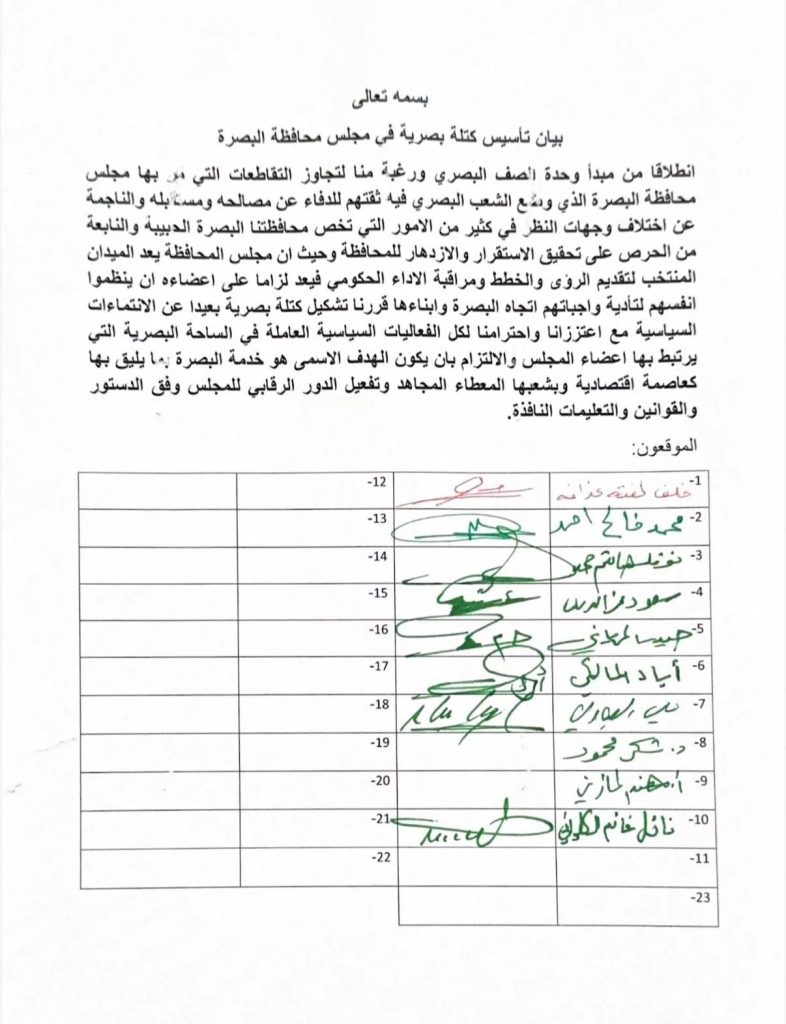 بسمه تعالى
بيان تأسيس كتلة بصرية في مجلس محافظة البصرة
انطلاقا من مبدأ وحدة الصف البصري ورغبة منا لتجاوز التقاطعات التي مر بها مجلس
محافظة البصرة الذي وضع الشعب البصري فيه ثقتهم للدفاع عن مصالحه ومستقبله والناجمة
عن اختلاف وجهات النظر في كثير من الامور التي تخص محافظتنا البصرة الحبيبة والنابعة
من الحرص على تحقيق الاستقرار والازدهار للمحافظة وحيث ان مجلس المحافظة يعد الميدان
المنتخب لتقديم الرؤى والخطط ومراقبة الاداء الحكومي فيعد لزاما على اعضاءه ان ينظموا
انفسهم لتأدية واجباتهم اتجاه البصرة وابناءها قررنا تشكيل كتلة بصرية بعيدا عن الانتماءات
السياسية مع اعتزازنا واحترامنا لكل الفعاليات السياسية العاملة في الساحة البصرية التي
يرتبط بها اعضاء المجلس والالتزام بان يكون الهدف الاسمى هو خدمة البصرة بما يليق بها
كعاصمة اقتصادية وبشعبها المعطاء المجاهد وتفعيل الدور الرقابي للمجلس وفق الدستور
والقوانين والتعليمات النافذة.
الموقعون:
1- خلف 12-
2- محمد فالح احمد 13-
3- 14-
4- سعود 15-
5- 16-
6- أياد المالكي 17-
7- 18-
8- د. شكر محمود 19-
9- أ. مهند المازني 20-
10- نائل غانم 21-
11- 22-
23-